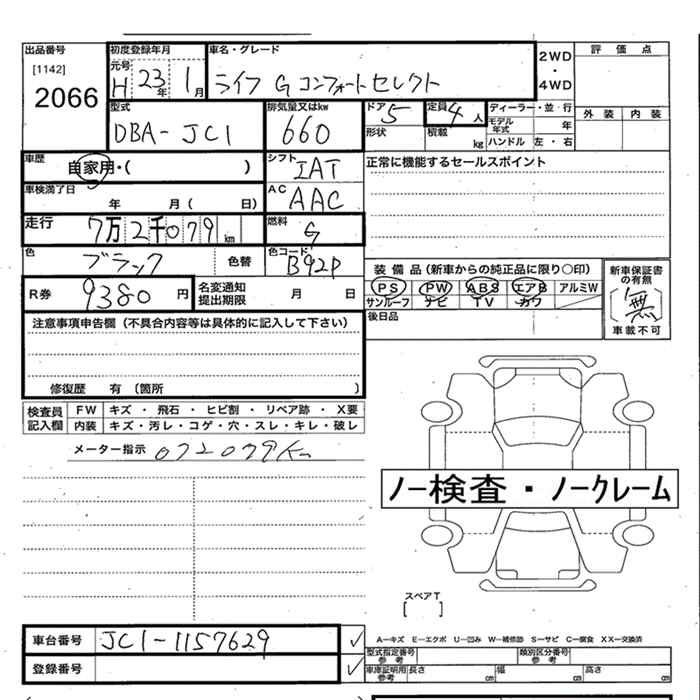 出品番号
[1142]
2066
初度登録年月
元号
H 23年 1月
車名・グレード
ライフ G コンフォートセレクト
2WD
・
4WD
評価点
外装 内装
型式
DBA-JC1
排気量又はkw
660
ドア 5
形状
定員 4人
積載 kg
ディーラー・並行
モデル年式 年
ハンドル 左・右
車歴
自家用・( )
シフト
IAT
正常に機能するセールスポイント
車検満了日
年 月( 日)
AC
AAC
走行
7万2千079km
燃料
G
色
ブラック
色替
色コード
B92P
装備品(新車からの純正品に限り○印)
PS PW ABS エアB アルミW
サンルーフ ナビ TV カワ
新車保証書の有無
無
車載不可
R券
9380円
名変通知
提出期限
月 日
後日品
注意事項申告欄(不具合内容等は具体的に記入して下さい)
修復歴 有(箇所 )
検査員記入欄
FW キズ・飛石・ヒビ割・リペア跡・X要
内装 キズ・汚レ・コゲ・穴・スレ・キレ・破レ
メーター指示 072079Km
ノー検査・ノークレーム
スペアT
[ ]
車台番号
JC1-1157629
✓
登録番号
✓
A-キズ E-エクボ U-凹み W-補修跡 S-サビ C-腐食 XX-交換済
型式指定番号
参考
類別区分番号
参考
車庫証明用
参考
長さ cm 幅 cm 高さ cm